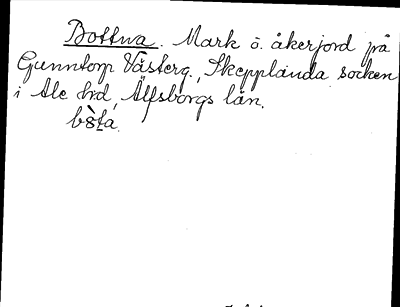 Bottna. Mark o. åkerjord på
Gunntorp Västerg., Skepplanda socken
i Ale hd, Älfsborgs län.